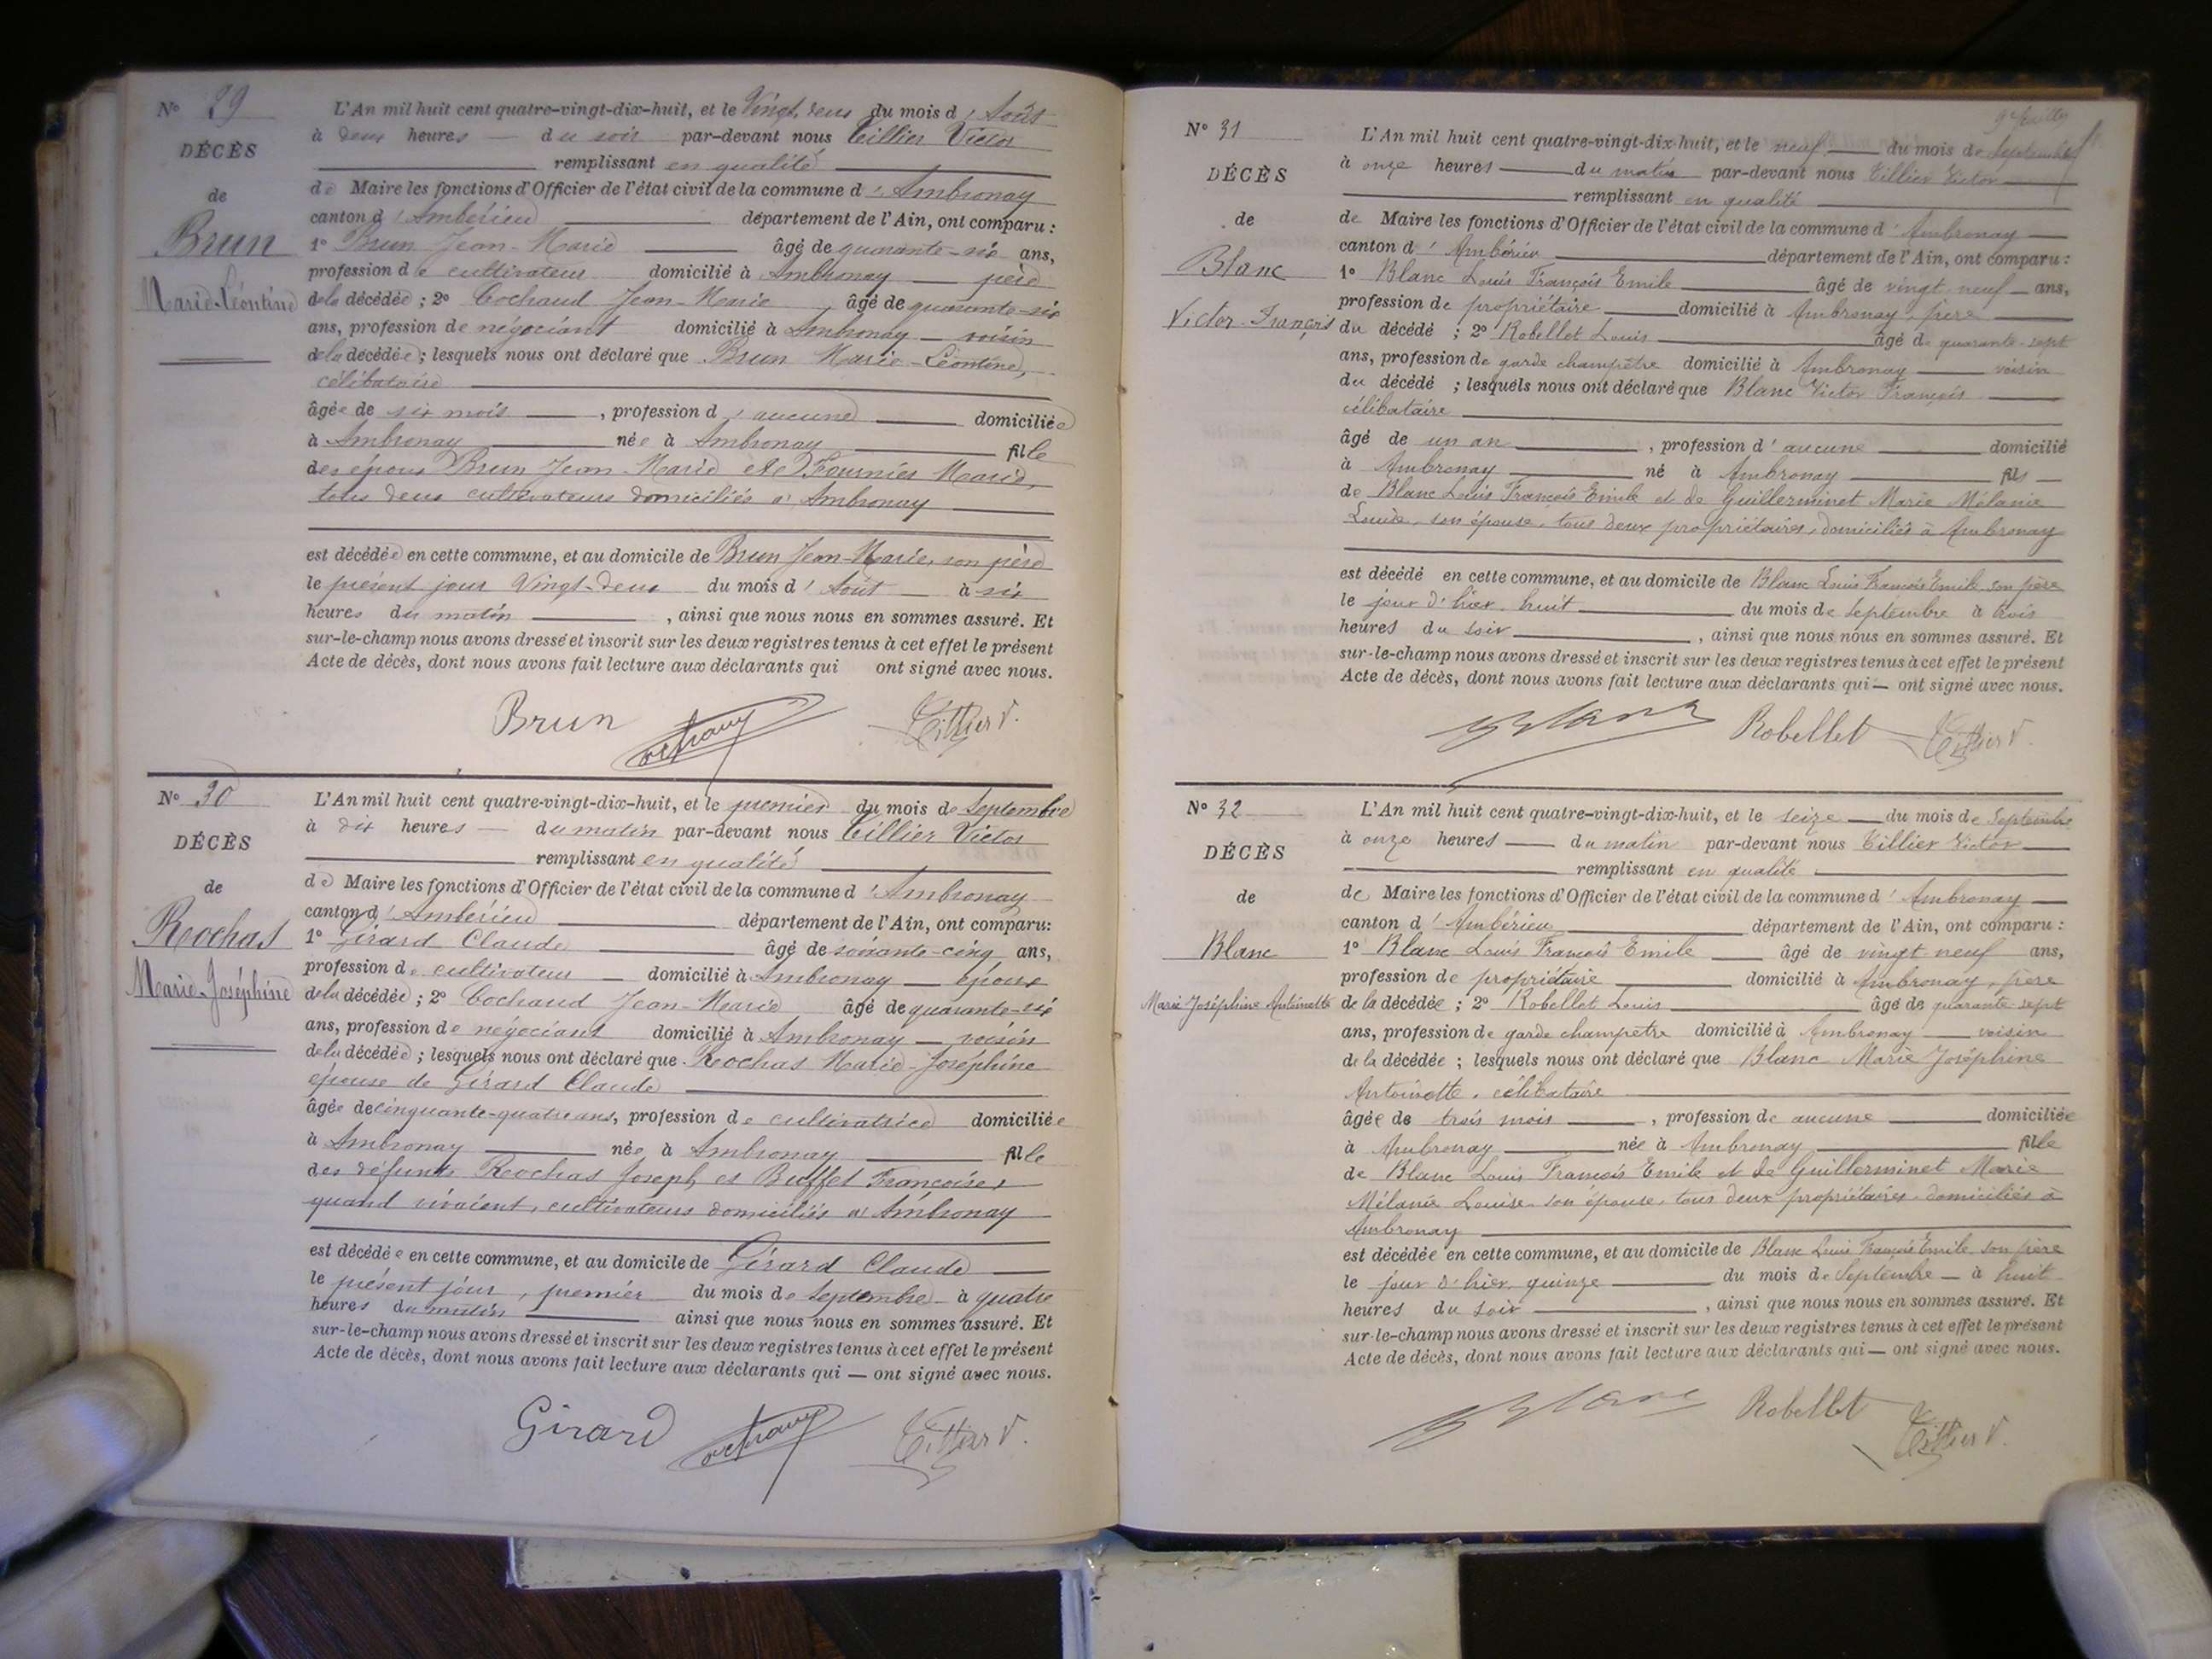 N° 29
DÉCÈS
de
Brun
Marie-Léontine
L'An mil huit cent quatre-vingt-dix-huit, et le Vingt deux du mois d'Août
à deux heures du soir par-devant nous Tillier Victor
remplissant en qualité
de Maire les fonctions d'Officier de l'état civil de la commune d'Ambronay
canton d'Ambérieu département de l'Ain, ont comparu :
1° Brun Jean-Marie âgé de quarante-six ans,
profession de cultivateur domicilié à Ambronay père
de la décédée ; 2° Cochaud Jean-Marie âgé de quarante-six
ans, profession de négociant domicilié à Ambronay voisin
de la décédée ; lesquels nous ont déclaré que Brun Marie-Léontine,
célibataire
âgée de six mois, profession d'aucune domiciliée
à Ambronay née à Ambronay fille
des époux Brun Jean-Marie et Fournier Marie,
tous deux cultivateurs domiciliés à Ambronay
est décédée en cette commune, et au domicile de Brun Jean-Marie, son père
le présent jour Vingt-deux du mois d'Août à six
heures du matin, ainsi que nous nous en sommes assuré. Et
sur-le-champ nous avons dressé et inscrit sur les deux registres tenus à cet effet le présent
Acte de décès, dont nous avons fait lecture aux déclarants qui ont signé avec nous.
Brun Cochaud Tillier V.
N° 30
DÉCÈS
de
Rochas
Marie-Joséphine
L'An mil huit cent quatre-vingt-dix-huit, et le premier du mois de Septembre
à dix heures du matin par-devant nous Tillier Victor
remplissant en qualité
de Maire les fonctions d'Officier de l'état civil de la commune d'Ambronay
canton d'Ambérieu département de l'Ain, ont comparu :
1° Girard Claude âgé de soixante-cinq ans,
profession de cultivateur domicilié à Ambronay époux
de la décédée ; 2° Cochaud Jean-Marie âgé de quarante-six
ans, profession de négociant domicilié à Ambronay voisin
de la décédée ; lesquels nous ont déclaré que Rochas Marie-Joséphine
épouse de Girard Claude
âgée de cinquante-quatre ans, profession de cultivatrice domiciliée
à Ambronay née à Ambronay fille
des défunts Rochas Joseph et Buffet Françoise,
quand vivaient, cultivateurs domiciliés à Ambronay
est décédée en cette commune, et au domicile de Girard Claude
le présent jour, premier du mois de Septembre à quatre
heures du matin ainsi que nous nous en sommes assuré. Et
sur-le-champ nous avons dressé et inscrit sur les deux registres tenus à cet effet le présent
Acte de décès, dont nous avons fait lecture aux déclarants qui — ont signé avec nous.
Girard Cochaud Tillier V.
N° 31
DÉCÈS
de
Blanc
Victor-François
L'An mil huit cent quatre-vingt-dix-huit, et le neuf du mois de Septembre
à onze heures du matin par-devant nous Tillier Victor
remplissant en qualité
de Maire les fonctions d'Officier de l'état civil de la commune d'Ambronay
canton d'Ambérieu département de l'Ain, ont comparu :
1° Blanc Louis François Emile âgé de vingt neuf ans,
profession de propriétaire domicilié à Ambronay, père
du décédé ; 2° Robellet Louis âgé de quarante-sept
ans, profession de garde champêtre domicilié à Ambronay voisin
du décédé ; lesquels nous ont déclaré que Blanc Victor François
célibataire
âgé de un an, profession d'aucune domicilié
à Ambronay né à Ambronay fils
de Blanc Louis François Emile et de Guillerminet Marie Mélanie
Louise, son épouse, tous deux propriétaires, domiciliés à Ambronay
est décédé en cette commune, et au domicile de Blanc Louis François Emile son père
le jour d'hier, huit du mois de Septembre à trois
heures du soir, ainsi que nous nous en sommes assuré. Et
sur-le-champ nous avons dressé et inscrit sur les deux registres tenus à cet effet le présent
Acte de décès, dont nous avons fait lecture aux déclarants qui — ont signé avec nous.
Blanc Robellet Tillier V.
N° 32
DÉCÈS
de
Blanc
Marie Joséphine Antoinette
L'An mil huit cent quatre-vingt-dix-huit, et le seize du mois de Septembre
à onze heures du matin par-devant nous Tillier Victor
remplissant en qualité
de Maire les fonctions d'Officier de l'état civil de la commune d'Ambronay
canton d'Ambérieu département de l'Ain, ont comparu :
1° Blanc Louis François Emile âgé de vingt neuf ans,
profession de propriétaire domicilié à Ambronay, père
de la décédée ; 2° Robellet Louis âgé de quarante-sept
ans, profession de garde champêtre domicilié à Ambronay voisin
de la décédée ; lesquels nous ont déclaré que Blanc Marie Joséphine
Antoinette, célibataire
âgée de trois mois, profession de aucune domiciliée
à Ambronay née à Ambronay fille
de Blanc Louis François Emile et de Guillerminet Marie
Mélanie Louise son épouse, tous deux propriétaires domiciliés à
Ambronay
est décédée en cette commune, et au domicile de Blanc Louis François Emile, son père
le jour d'hier, quinze du mois de Septembre à huit
heures du soir, ainsi que nous nous en sommes assuré. Et
sur-le-champ nous avons dressé et inscrit sur les deux registres tenus à cet effet le présent
Acte de décès, dont nous avons fait lecture aux déclarants qui — ont signé avec nous.
Blanc Robellet Tillier V.